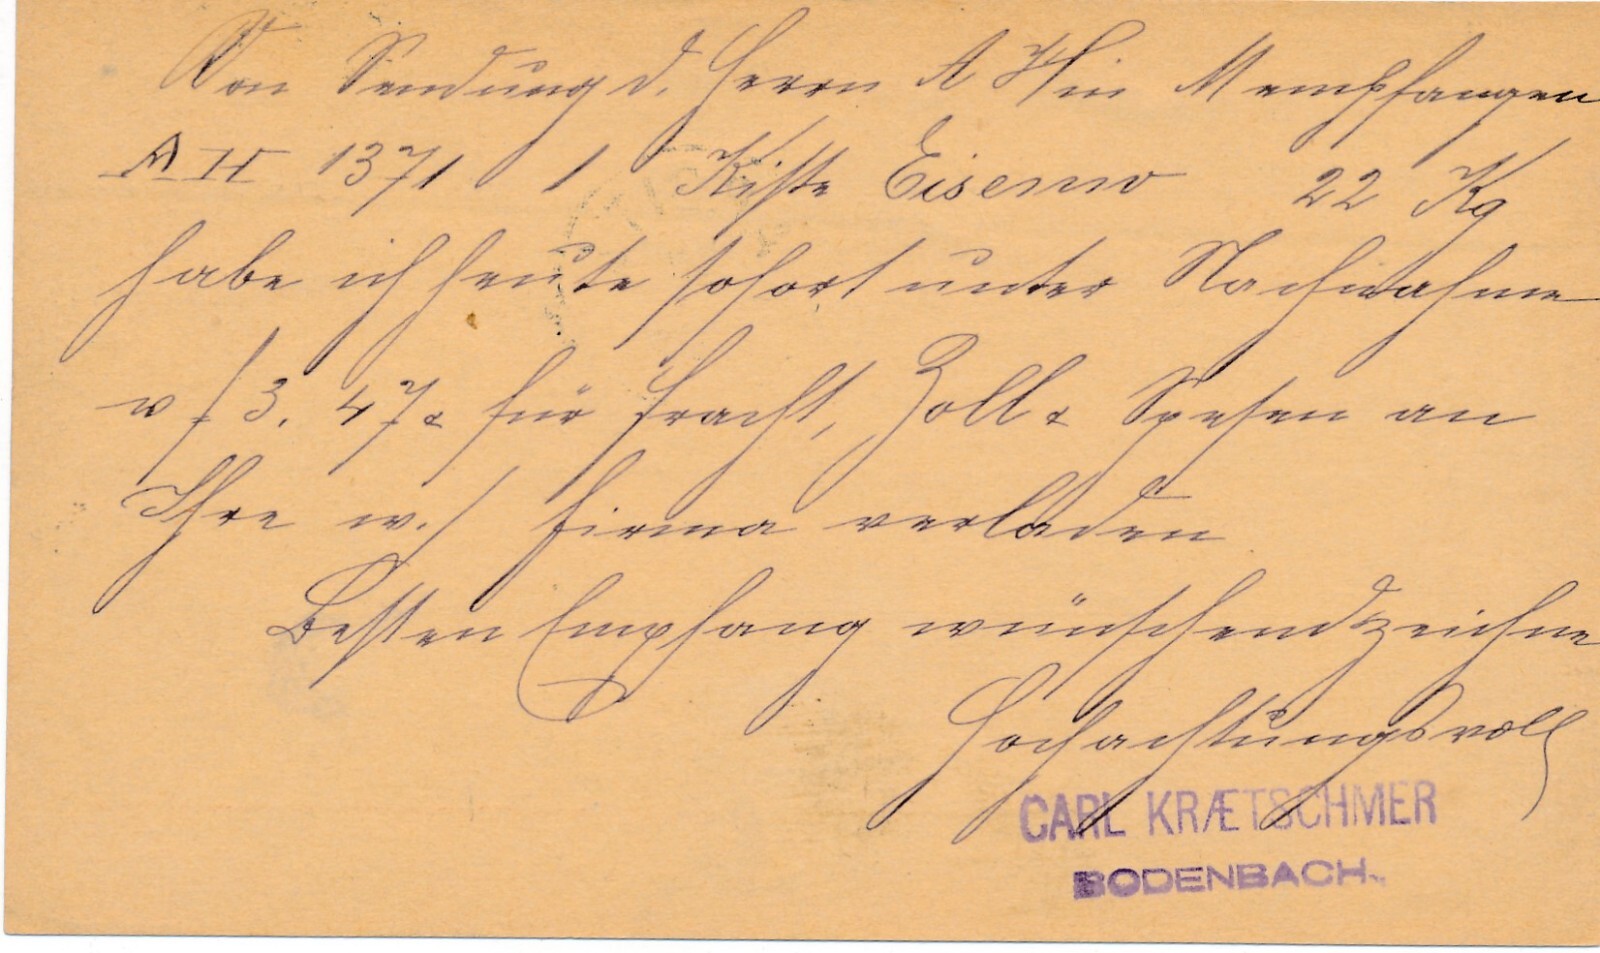 Von Sendung d. Herrn A H in M empfangen
A H 1371 1 Kiste Eisenw 22 Kg
habe ich heute sofort unter Nachnahme
v f 3. 47 x für Fracht, Zoll & Spesen an
Ihre w./ Firma verladen
Besten Empfang wünschend zeichne
Hochachtungsvoll
CARL KRÆTSCHMER
BODENBACH.